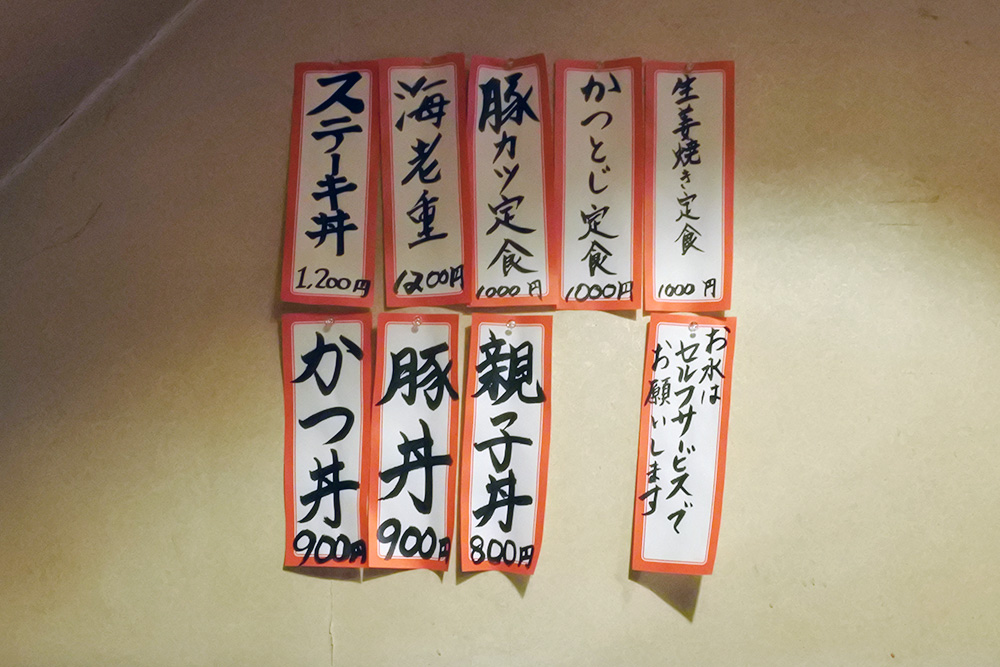 生姜焼き定食
1000円
かつとじ定食
1000円
豚カツ定食
1000円
海老重
1200円
ステーキ丼
1,200円
お水は
セルフサービスで
お願いします
親子丼
800円
豚丼
900円
かつ丼
900円